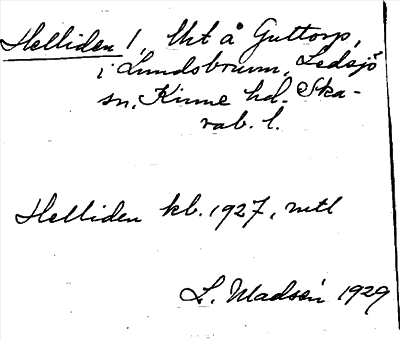 Helliden 1, lht å Guttorp,
i Lundsbrunn, Ledsjö
sn, Kinne hd. Ska-
rab. l.
Helliden kb. 1927, mtl
L. Madsén 1929